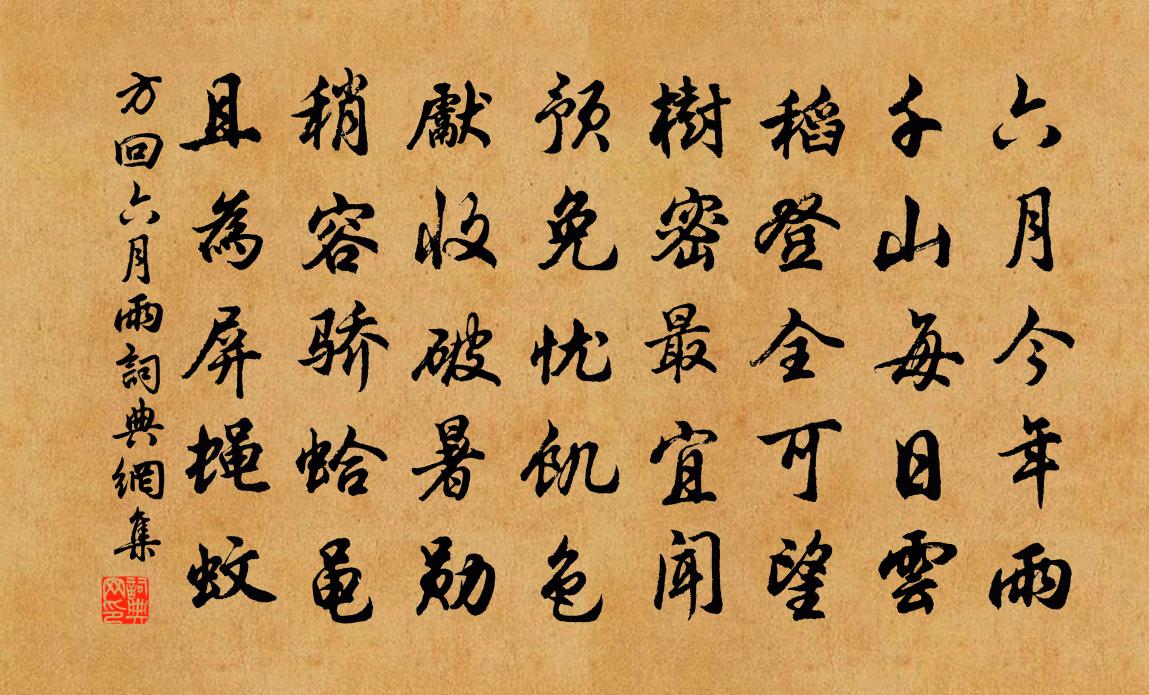 六月今年雨
千山每日雲
稻登全可望
樹密最宜聞
预免忧飢色
獻收破暑勋
稍容骄蛤黾
且為屏蝇蚊
方回六月雨詞典網集
詞典网印